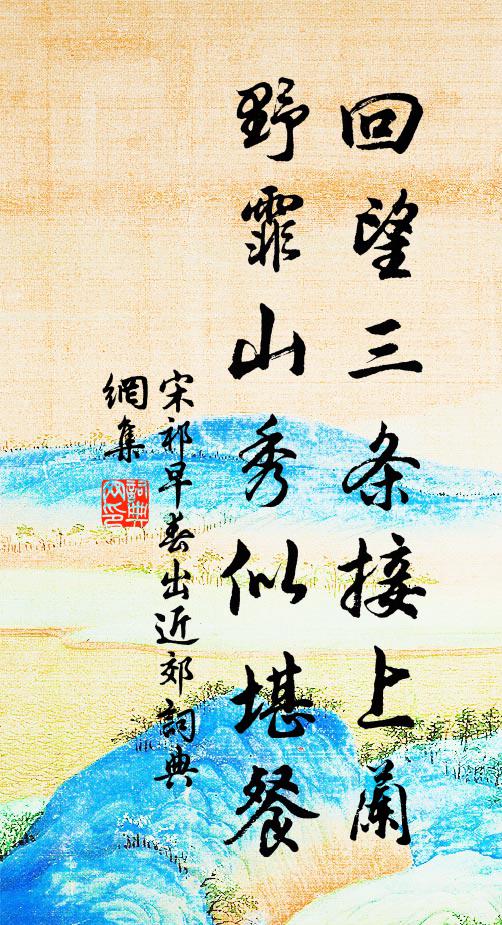 回望三条接上蘭
野霏山秀似堪餐
宋祁早春出近郊詞典
網集
詞典